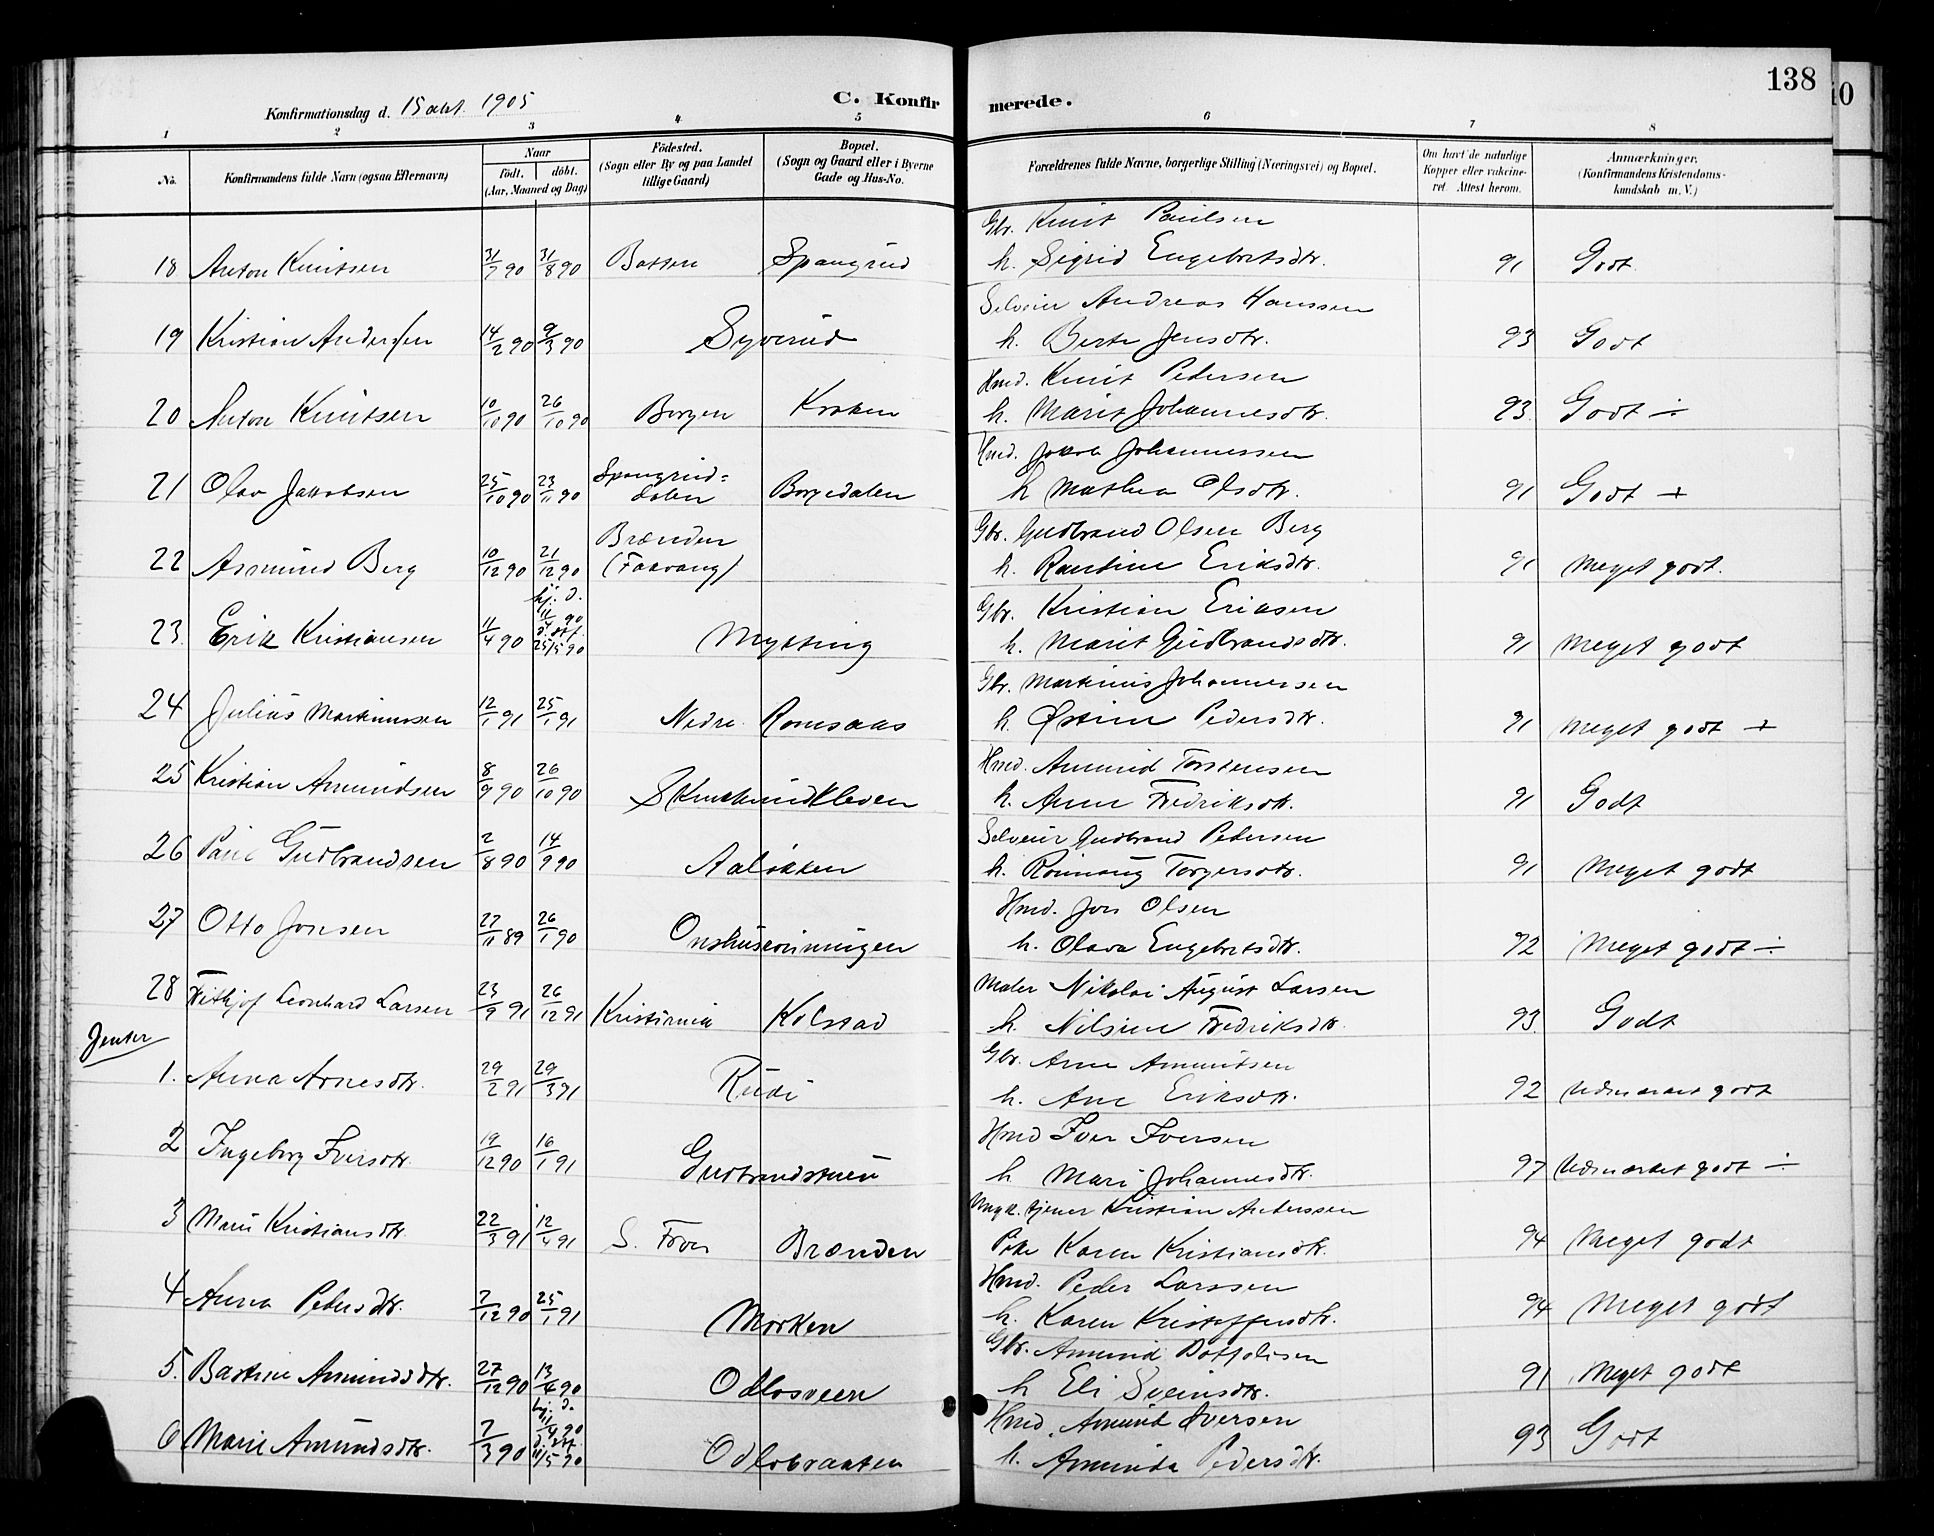 138
Konfirmationsdag d. 15 okt. 1905
C. Konfirmerede.
1 2 3 4 5 6 7 8
No. Konfirmandens fulde Navn (ogsaa Efternavn) Naar født. døbt. (Aar, Maaned og Dag) Fødested. (Sogn eller By og paa Landet tillige Gaard) Bopæl. (Sogn og Gaard eller i Byerne Gade og Hus-No. Forældrenes fulde Navne, borgerlige Stilling (Næringsvei) og Bopæl. Om havt de naturlige Kopper eller vakcineret. Attest herom. Anmærkninger. (Konfirmandens Kristendomskundskab m. V.)
Gbr. Knut Paulsen
18 Anton Knutsen 31/7 90 31/8 90 Batten Spangrud h. Sigrid Engebretsdtr. 91 Godt
Selveier Andreas Hanssen
19 Kristian Andersen 14/2 90 9/3 90 Syverud h. Berte Jensdtr. 93 Godt
Hmd. Knut Pedersen
20 Anton Knutsen 10/10 90 26/10 90 Borgen Kraken h. Marit Johannesdtr. 93. Godt ÷
Hmd. Jakob Johannessen
21 Olav Jakobsen 25/10 90 23/11 90 Spangrud=dalen Borgedalen h Mathea Olsdtr. 91 Godt +
Gbr. Gudbrand Olsen Berg
22 Asmund Berg 10/12 90 21/12 90 Brænden (Faavang) h. Rantine Eriksdtr. 91 Meget godt.
Gbr. Kristian Eriksen
23. Erik Kristiansen 11/4 90 hj. d. 11/4 90 d. stf. 25/5 90 Mytting h. Marit Gudbrandsdtr. 91 Meget godt
Gbr. Martinus Johannessen
24 Julius Martinussen 12/1 91 25/1 91 Nedre Romsaas h. Østine Pedersdtr. 91 Meget godt +
Hmd. Amund Torstensen
25 Kristian Amundsen 8/9 90 26/10 90 h. Anne Fredriksdtr. 91 Godt
Selveier Gudbrand Pedersen
26 Paul Gudbrandsen 2/8 90 14/9 90 Aaløkken h. Rønnaug Torgersdtr. 91 Meget godt
Hmd. Jon Olsen
27 Otto Jonsen 22/11 89 26/1 90 h. Olava Engebretsdtr. 92 Meget godt ÷
Maler Nikolai August Larsen
28 Fritjof Leonhard Larsen 23/9 91 26/12 91 Kristiania Kolstad h. Nilsine Fredriksdtr. 93 Godt
Jenter
Gbr. Arne Amundsen
1. Anna Arnesdtr. 29/2 91 29/3 91 Rudi h. Ane Eriksdtr. 92 Udmærket godt
Hmd Iver Iversen
2 Ingeborg Iversdtr. 19/12 90 16/1 91 Gudbrandstuen h Mari Johannesdtr. 97 Udmærket godt ÷
Ungk. tjener Kristian Anderssen
3 Marie Kristiansdtr. 22/3 91 12/4 91 S. Fron Brænden Pike Karen Kristiansdtr. 94 Meget godt
Hmd. Peder Larssen
4 Anna Pedersdtr. 7/12 90 25/1 91 Morken h. Karen Kristoffersdtr. 94 Meget godt
Gbr. Amund Bottolfsen
5. Bastine Amundsdtr. 27/12 90 13/4 90 Odlosveen h Eli Sveinsdtr. 91 Meget godt
Hmd. Amund Iversen
6 Marie Amundsdtr. 7/3 90 hj. d. 11/4 90 d. stf. 11/5 90 Odlobraaten h. Amunda Pedersdtr. 93 Godt